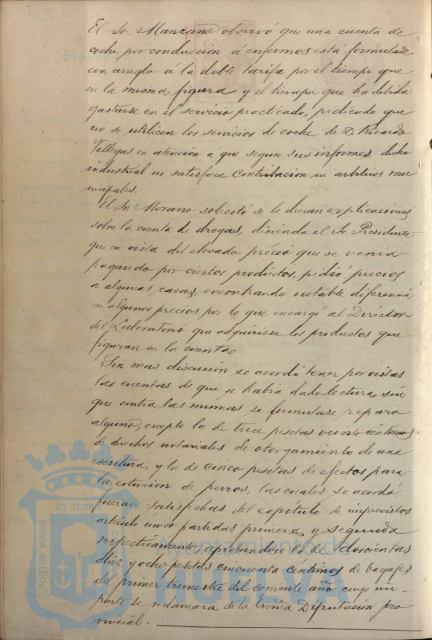 El Sr. Manzano observó que una cuenta de
coche por conducción á enfermos está formulada
con arreglo á la doble tarifa por el tiempo que
en la misma figura y el tiempo que ha debido
gastarse en el servicio practicado, pidiendo que
no se utilicen los servicios de coche de D. Ricardo
Villegas en atención a que segun sus informes dicho
industrial no satisface Contribucion ni arbitrios mu
nicipales.
El Sr. Morano solicitó se le dieran explicaciones
sobre la cuenta de drogas, diciendo el Sr. Presidente
que en vista del elevado precio que se venia
pagando por ciertos productos, pidió precios
a algunas casas, encontrando notable diferencia
en algunos precios por lo que encargó al Director
del Laboratorio que adquiriese los productos que
figuran en la cuenta.
Sin mas discusión se acordó tener por vistas
las cuentas de que se habia dado lectura, sin
que contra las mismas se formulase reparo
alguno, excepto la de trece pesetas veinte centimos
de derechos notariales de otorgamiento de una
escritura, y la de cinco pesetas de efectos para
la de perros, las cuales se acordó
fueran satisfechas del capitulo de imprevistos
articulo unico partidas primera y segunda
respectivamente, aprobandose la de doscientas
diez y ocho pesetas cincuenta centimos de bagajes
del primer trimestre del corriente año cuyo im
porte se reclamará de la Excma Diputación pro
vincial.
ET TERR
PORTUS MARIS
Ayuntamiento de
HUELVA